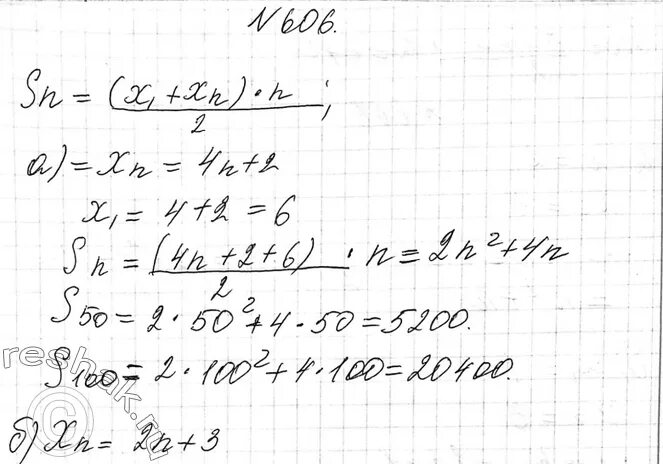 N606.
Sn = (x₁ + xn) · n / 2 ;
а) = xn = 4n+2
x₁ = 4+2 = 6
Sn = (4n+2+6) / 2 · n = 2n² + 4n
S50 = 2 · 50² + 4 · 50 = 5200.
S100 = 2 · 100² + 4 · 100 = 20400.
б) xn = 2n+3
reshak.ru
©